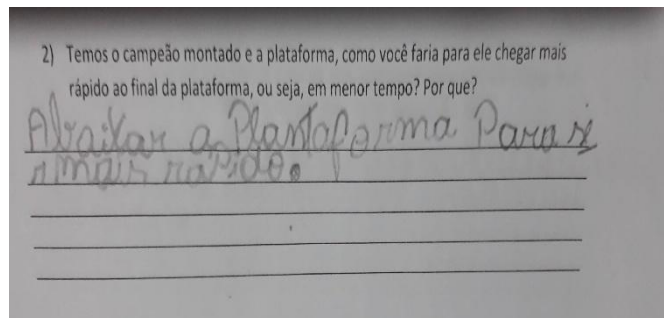 2) Temos o campeão montado e a plataforma, como você faria para ele chegar mais
rápido ao final da plataforma, ou seja, em menor tempo? Por que?
Abaixar a Plantaforma Para i
r mais rápido.